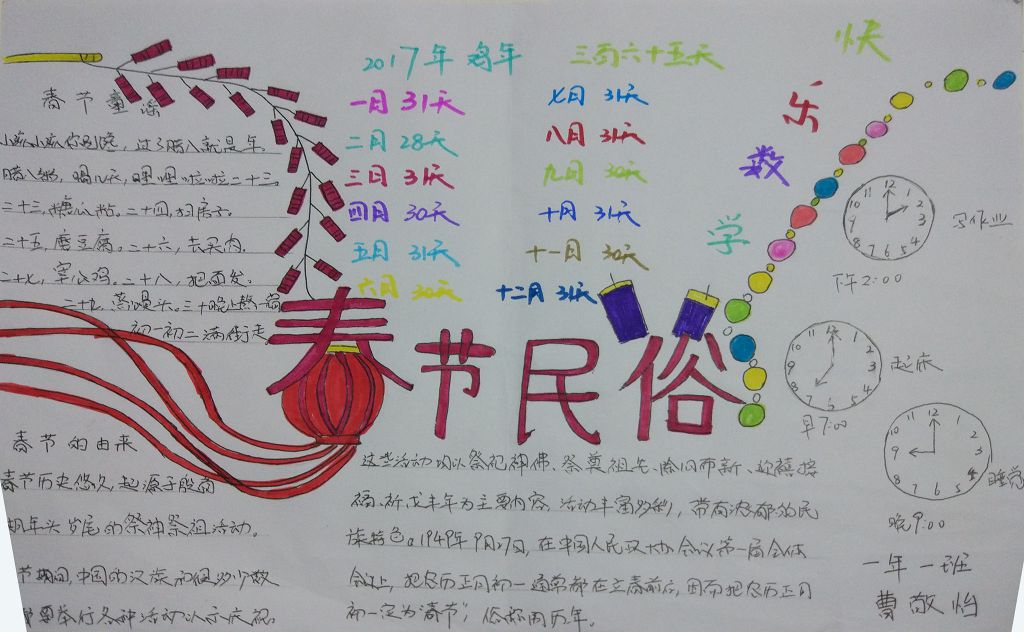 春节童谣
小孩小孩你别馋，过了腊八就是年。
腊八粥，喝几天，哩哩啦啦二十三。
二十三，糖瓜粘。二十四，扫房子。
二十五，磨豆腐。二十六，去买肉。
二十七，宰公鸡。二十八，把面发。
二十九，蒸馒头。三十晚上熬一宿
初一初二满街走
2017年 鸡年
三百六十五天
一月 31天
二月 28天
三月 31天
四月 30天
五月 31天
六月 30天
七月 31天
八月 31天
九月 30天
十月 31天
十一月 30天
十二月 31天
快
乐
数
学
春节民俗
12 1 2 3 4 5 6 7 8 9 10 11
写作业
下午2:00
12 1 2 3 4 5 6 7 8 9 10 11
起床
早7:00
12 1 2 3 4 5 6 7 8 9 10 11
睡觉
晚9:00
春节的由来
春节历史悠久，起源于殷商
期年头岁尾的祭神祭祖活动。
节期间，中国的汉族和很多少数
都要举行各种活动以示庆祝。
这些活动均以祭祀神佛、祭奠祖先、除旧布新、迎禧接
福、祈求丰年为主要内容，活动丰富多彩，带有浓郁的民
族特色。1949年9月27日，在中国人民政协会议第一届全体
会议上，把农历正月初一通常都在立春前后，因而把农历正月
初一定为"春节"，俗称阴历年。
一年一班
曹敬怡